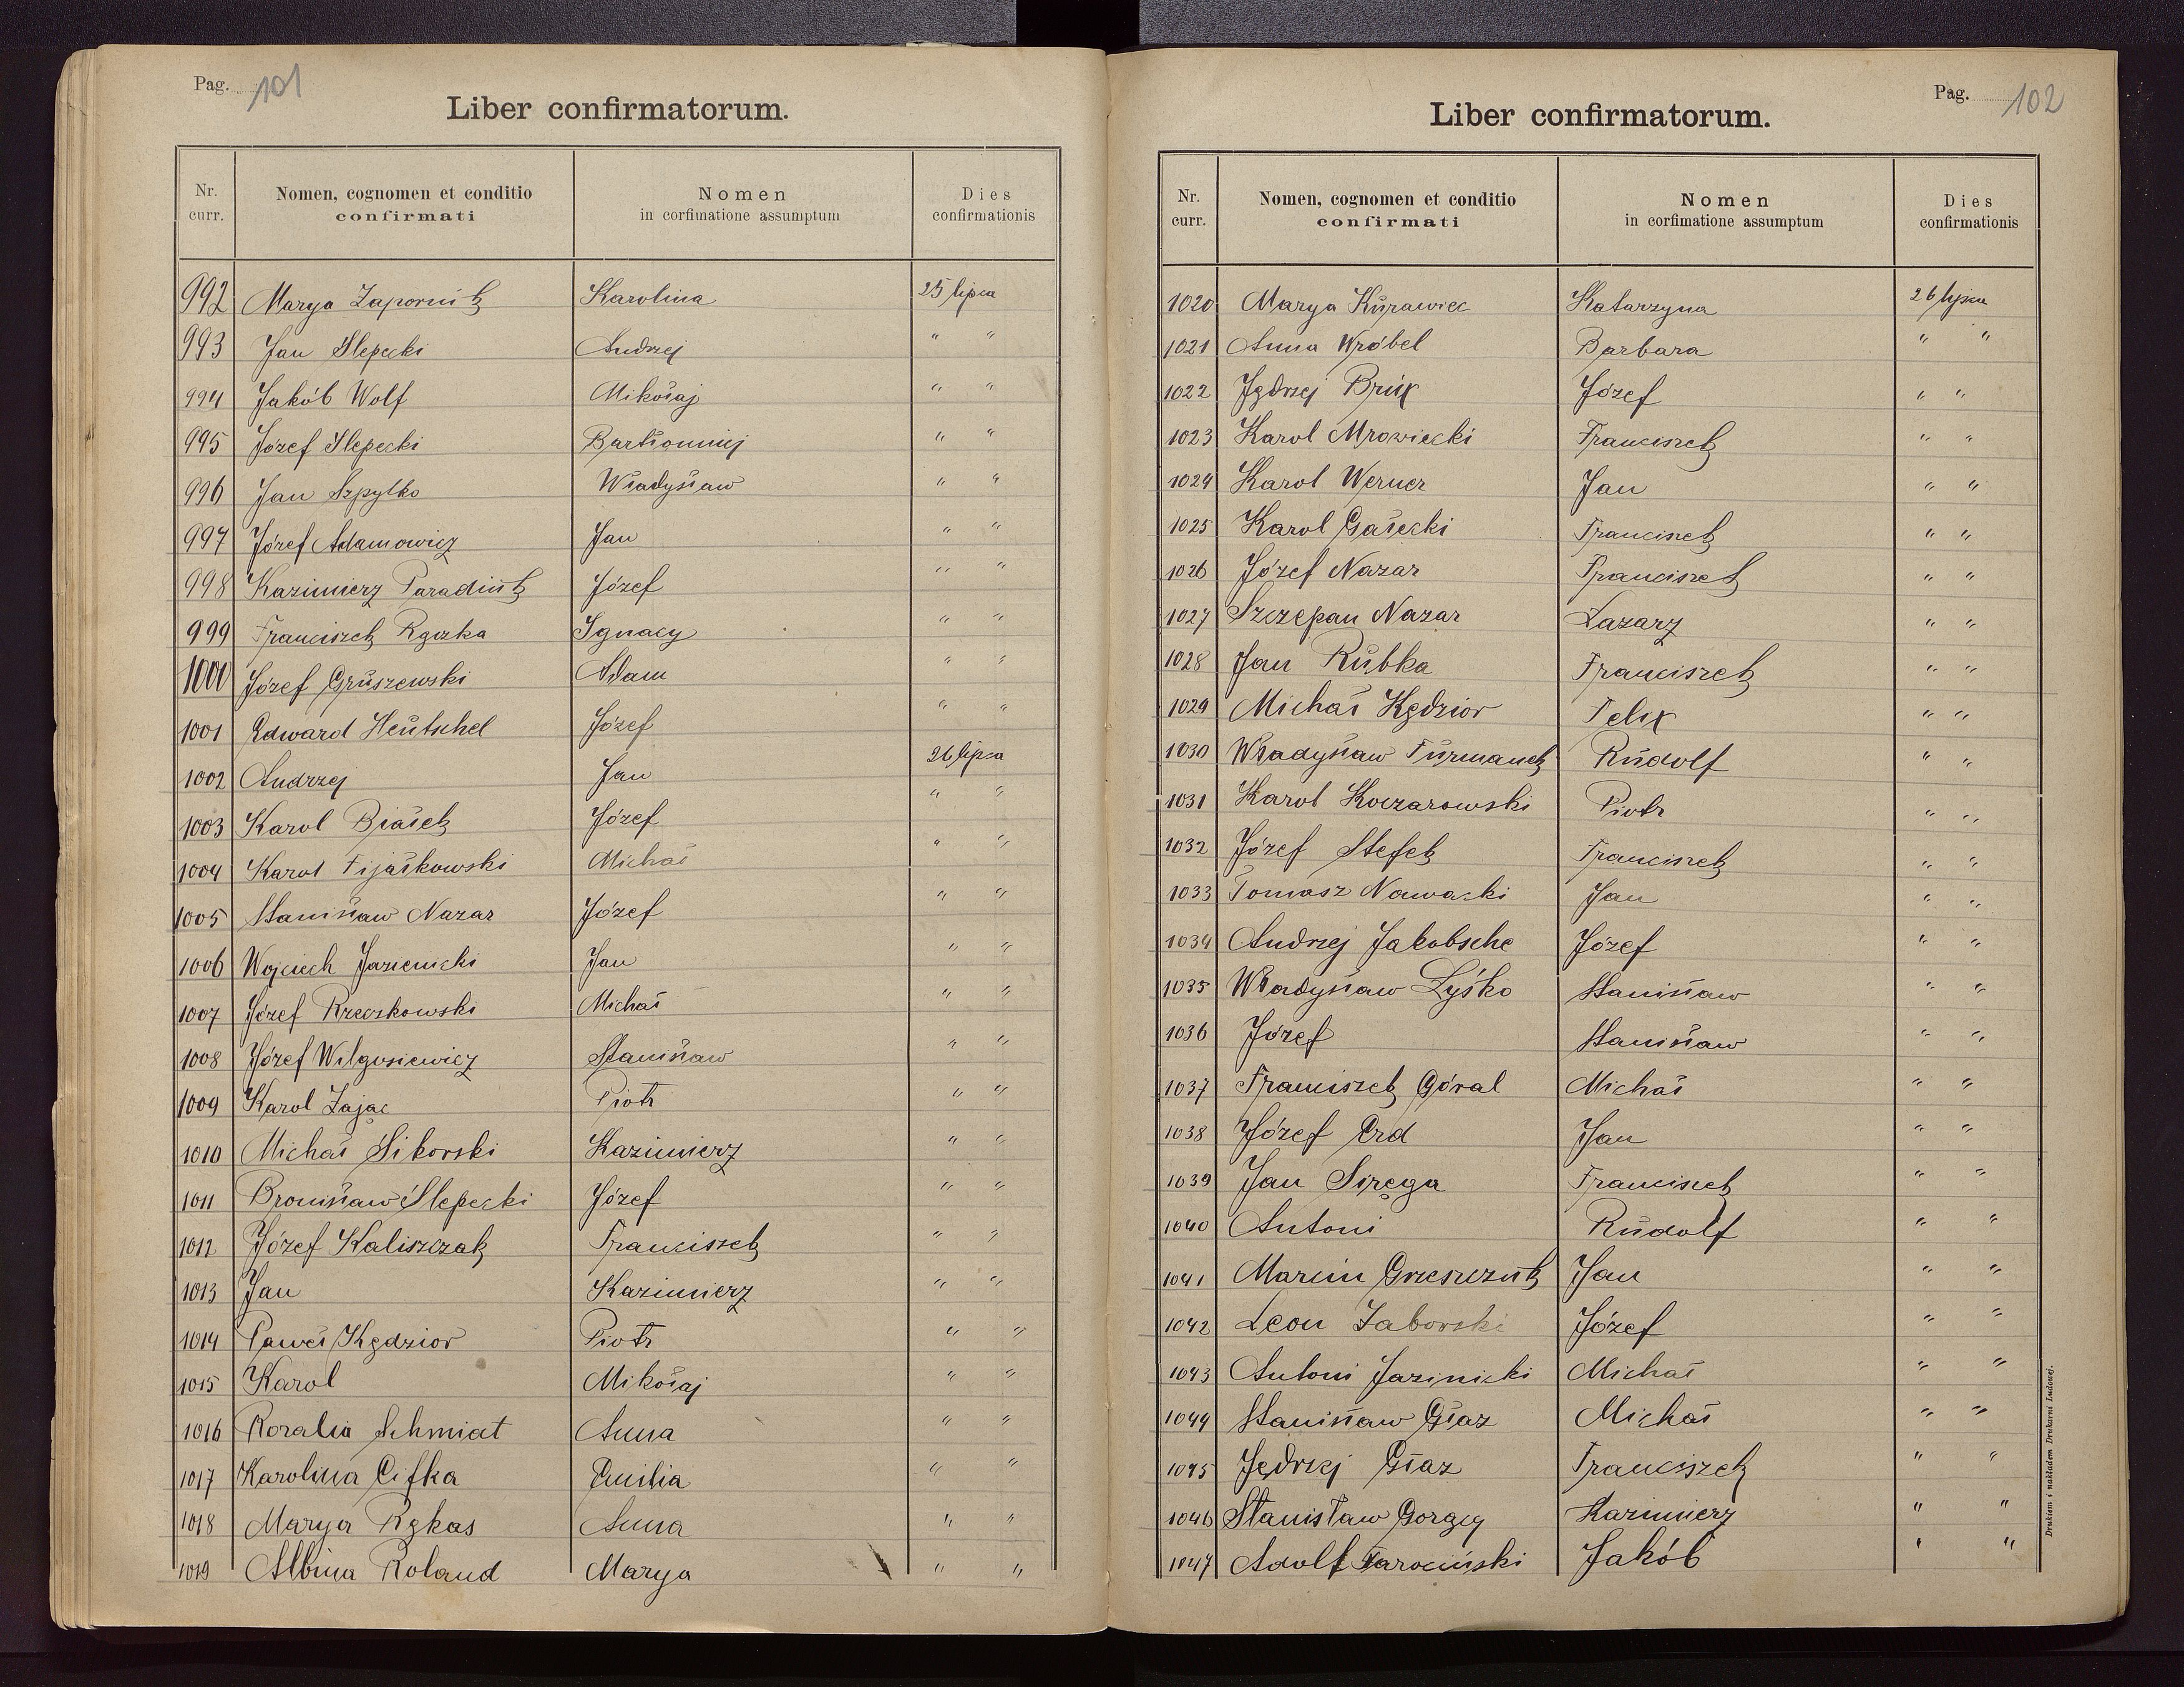 Pag. 101
Liber confirmatorum.
Nr. curr. Nomen, cognomen et conditio confirmati Nomen in corfimatione assumptum Dies confirmationis
992 Marya Zapornik Karolina 25 lipca
993 Jan Slepecki Andrzej " "
994 Jakób Wolf Mikołaj " "
995 Józef Slepecki Bartłomiej " "
996 Jan Szpytko Władysław " "
997 Józef Adamowicz Jan " "
998 Kazimierz Paradiuk Józef " "
999 Franciszek Rączka Ignacy " "
1000 Józef Gruszewski Adam " "
1001 Edward Heutschel Józef " "
1002 Andrzej Jan 26 lipca
1003 Karol Białek Józef " "
1004 Karol Fijałkowski Michał " "
1005 Stanisław Nazar Józef " "
1006 Wojciech Jasienicki Jan " "
1007 Józef Rzeczkowski Michał " "
1008 Józef Wilgusiewicz Stanisław " "
1009 Karol Zając Piotr " "
1010 Michał Sikorski Kazimierz " "
1011 Bronisław Slepecki Józef " "
1012 Józef Kaliszczak Franciszek " "
1013 Jan Kazimierz " "
1014 Paweł Kędzior Piotr " "
1015 Karol Mikołaj " "
1016 Rozalia Schmiat Anna " "
1017 Karolina Cifka Emilia " "
1018 Marya Rękas Anna " "
1019 Albina Roland Marya " "
Pag. 102
Liber confirmatorum.
Nr. curr. Nomen, cognomen et conditio confirmati Nomen in corfimatione assumptum Dies confirmationis
1020 Marya Kurawiec Katarzyna 26 lipca
1021 Anna Wróbel Barbara " "
1022 Jędrzej Brux Józef " "
1023 Karol Mrowiecki Franciszek " "
1024 Karol Werner Jan " "
1025 Karol Gałecki Franciszek " "
1026 Józef Nazar Franciszek " "
1027 Szczepan Nazar Łazarz " "
1028 Jan Rubka Franciszek " "
1029 Michał Kędzior Felix " "
1030 Władysław Furmanek Rudolf " "
1031 Karol Koczarowski Piotr " "
1032 Józef Stefek Franciszek " "
1033 Tomasz Nawacki Jan " "
1034 Andrzej Jakobsche Józef " "
1035 Władysław Łyśko Stanisław " "
1036 Józef Stanisław " "
1037 Franciszek Góral Michał " "
1038 Józef Erd Jan " "
1039 Jan Siręga Franciszek " "
1040 Antoni Rudolf " "
1041 Marcin Grzeszczuk Jan " "
1042 Leon Zaborski Józef " "
1043 Antoni Jazinicki Michał " "
1044 Stanisław Głaz Michał " "
1045 Jędrzej Głaz Franciszek " "
1046 Stanisław Gorący Kazimierz " "
1047 Adolf Tarociński Jakób " "
Drukiem i nakładem Drukarni Ludowej.